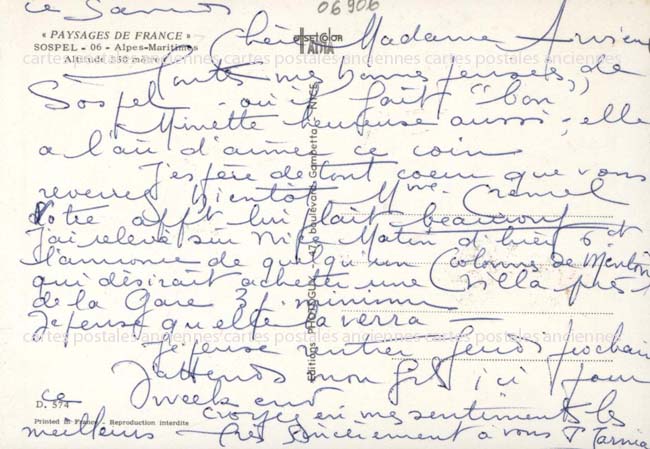 ce Samedi
06906
« PAYSAGES DE FRANCE »
SOSPEL - 06 - Alpes-Maritimes
Altitude 350 mètres
Chère Madame
Toutes mes bonnes pensées, de
Sospel - où il fait "bon"
Minette heureuse aussi, elle
a l'air d'aimer ce coin
J'espère de tout coeur que vous
reverrez bientôt Mme
Votre appt lui plait beaucoup
J'ai relevé sur Nice Matin d'hier 6 ct
l'annonce de quelqu'un Colonne de Menton
qui désirait acheter une Villa près
de la Gare 3 p. minimum
Je pense qu'elle la verra
Je pense rentrer Jeudi prochain
J'attends mon fils ici pour
ce week end
croyez en mes sentiments les
meilleurs - Très sincèrement à vous
D. 574
Printed in France - Reproduction interdite
Editions PHOTOGUY - boulevard Gambetta - NICE
cartes postales anciennes cartes postales anciennes cartes postales anciennes